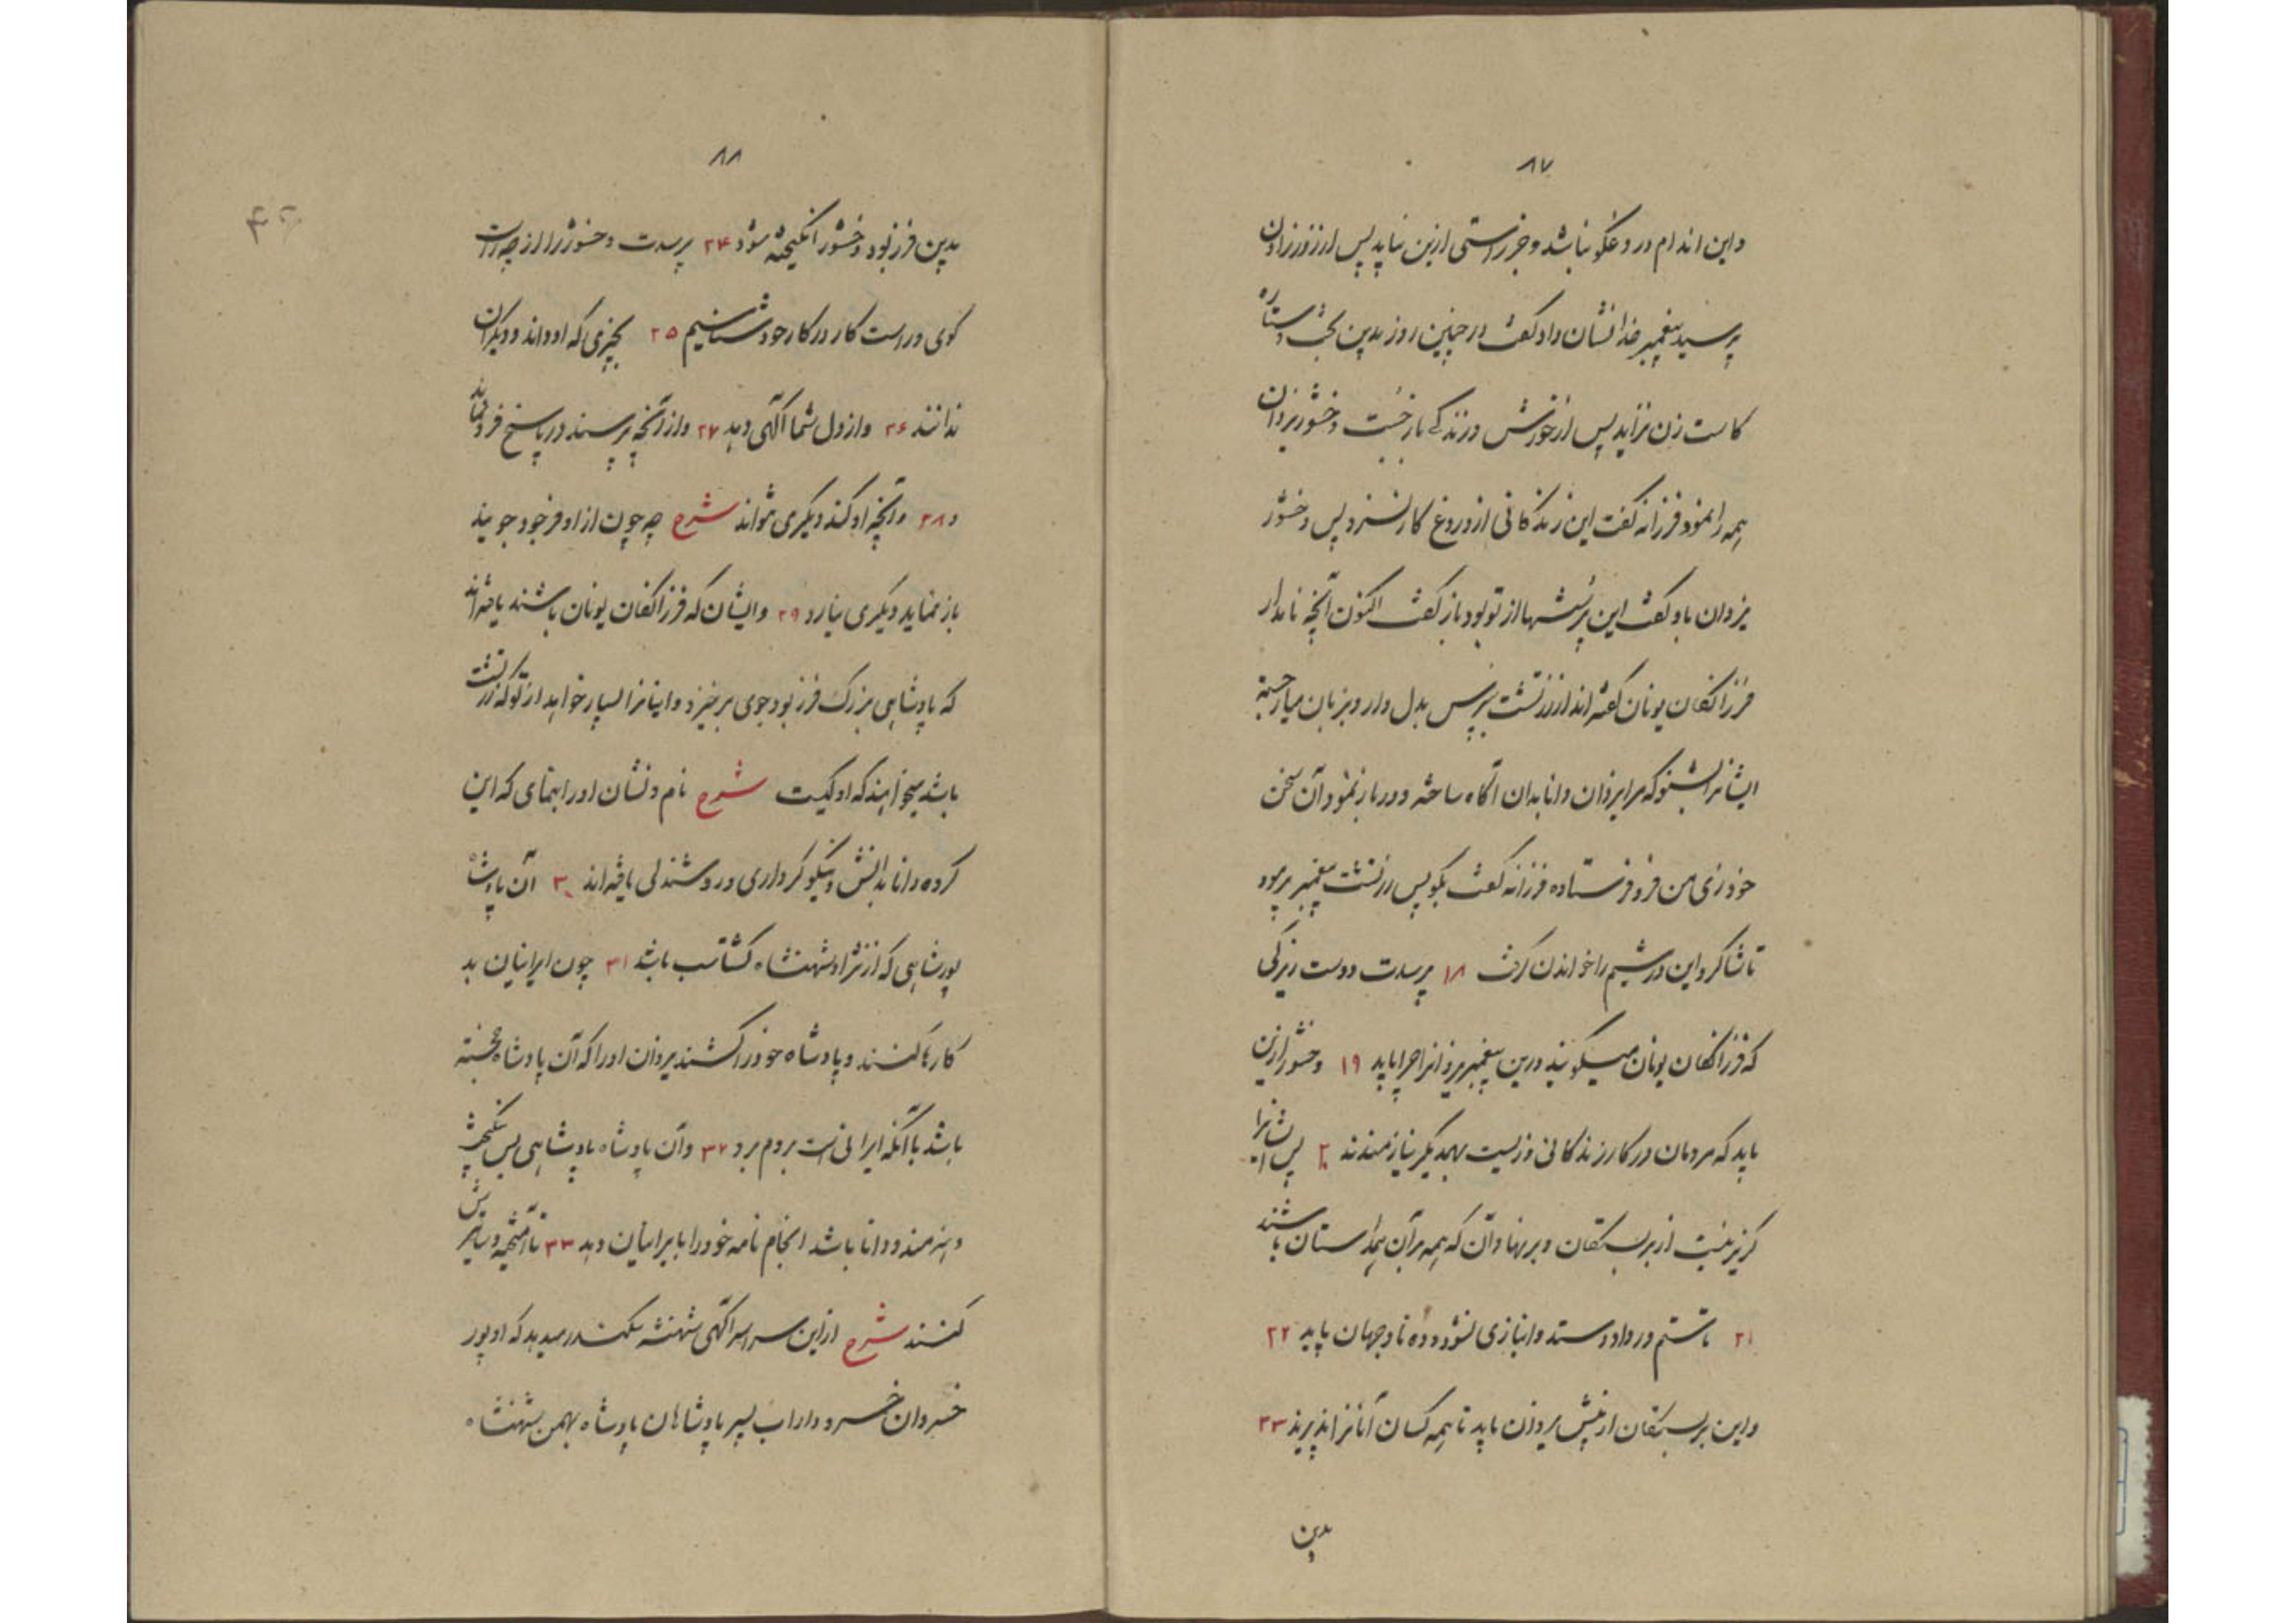 ۸۷
واین اندام دروغگو نباشد و جز راستی ازین نیاید پس از روز زادن
پرسید پیغمبر خدا نشان داد گفت در چنین روز بدین بخت و ستاره
کاست زن نزاید پس از خورش و زندگی باز جُست وخشور یزدان
همه را نمود فرزانه گفت این زندگانی از دروغ کار نسزد پس وخشور
یزدان باو گفت این پرسشها از تو بود باز گفت اکنون آنچه نامدار
فرزانگان یونان گفته اند از زرتشت بپرس بدل دار و بزبان میار خجسته
ایشانرا بشنو که مرا یزدان دانا بدان آگاه ساخته و در باز نمود آن سخن
خود زی من فرو فرستاده فرزانه گفت بگو پس زرتشت پیغمبر فرمود
تا شاگرد این درشیم را خواندن گرفت ۱۸ پرسدت دوست زیرکی
که فرزانگان یونان میگویند درین پیغمبر یزدانرا چرا باید ۱۹ وخشور ازین
باید که مردمان در کار زندگانی و زیست بهمدیگر نیازمندند ۲۰ پس ایشانرا
گزیر نیست از بربستگان و برنهادان که همه بر آن همداستان باشند
۲۱ تا ستم در داد و ستد و انبازی نشود و ده ناد جهان پاید ۲۲
واین بربستگان از پیش یزدان باید تا همه کسان آنانرا پذیرند ۲۳
بدین
۸۸
بدین فرز بود وخشور انگیخته شود ۲۴ پرسدت وخشور را از چه راست
گوی و راست کار در کار خود شناسیم ۲۵ بچیزی که او داند و دیگران
ندانند ۲۶ و از دل شما آگهی دهد ۲۷ و از آنچه پرسند در پاسخ فرو نماند
و ۲۸ و آنچه او کند دیگری نتواند شرح چه چون از او فرجود جویند
باز نماید دیگری نیارد ۲۹ وایشان که فرزانگان یونان باشند یاخته اند
که پادشاهی بزرگ فرز بود جوی برخیزد و اینانرا بسیار خواهد از تو که زرتشت
باشد میخواهند که او کیست شرح نام و نشان او را بنمای که این
گروه دانا بدانش و نیکو کرداری و روشندلی یافته اند ۳۰ آن پادشاه
پور شاهی که از نژاد شهنشاه گشتاسب باشد ۳۱ چون ایرانیان بد
کارها کنند و پادشاه خود را کشند یزدان او را که آن پادشاه خجسته
باشد با آنکه ایرانی است بروم برد ۳۲ وآن پادشاه پادشاهی بس نیکبخت
و هنرمند و دانا باشد انجام نامه خود را بایرانیان دهد ۳۳ تا آمیخته دساتیرش
کنند شرح ازین سراسر آگهی شهنشه سکندر میدهد که او پور
خسروان خسرو داراب پسر پادشاهان پادشاه بهمن شهنشاه